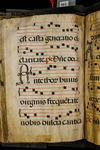 est casta generatio c
claritate
Nec thorum
virginis frequētate
nobis dulcia cantica